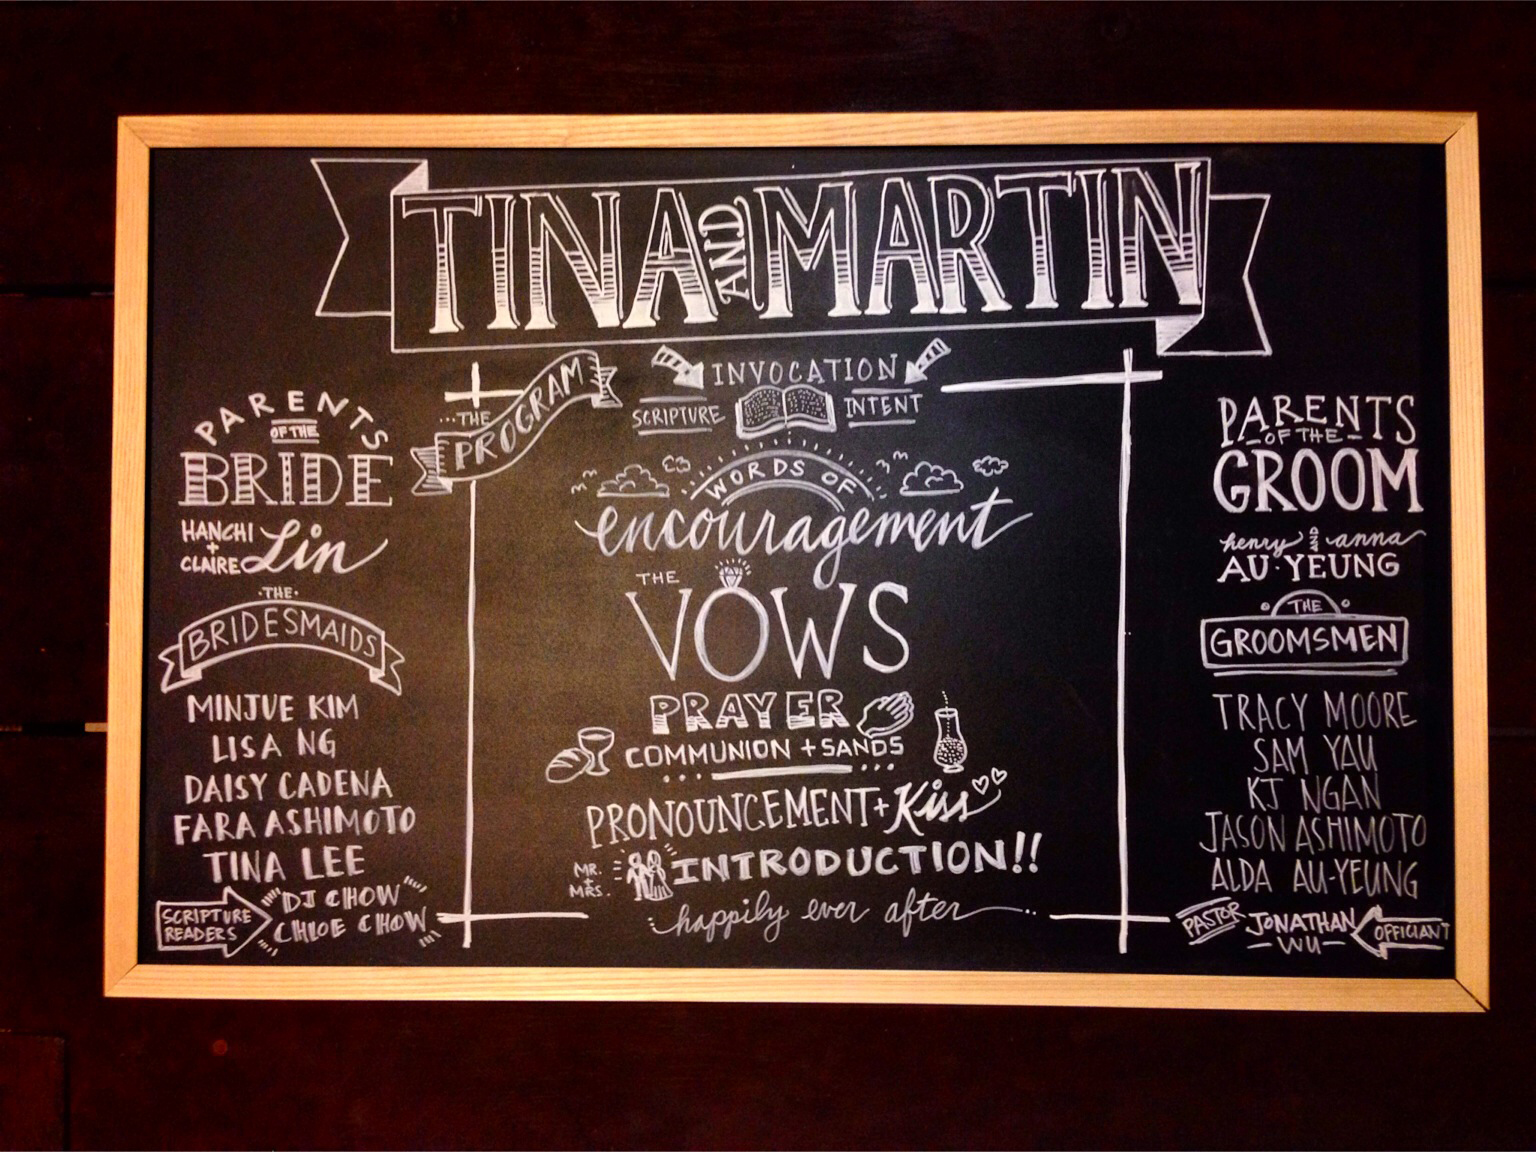 TINA AND MARTIN
PARENTS
OF THE
BRIDE
HANCHI
+
CLAIRE Lin
·THE·
BRIDESMAIDS
MINJUE KIM
LISA NG
DAISY CADENA
FARA ASHIMOTO
TINA LEE
SCRIPTURE
READERS
DJ CHOW
CHLOE CHOW
...THE
PROGRAM
INVOCATION
SCRIPTURE INTENT
WORDS OF
encouragement
THE
VOWS
PRAYER
COMMUNION + SANDS
PRONOUNCEMENT + Kiss
MR.
+
MRS.
INTRODUCTION!!
happily ever after
PARENTS
-OF THE-
GROOM
henry and anna
AU·YEUNG
THE
GROOMSMEN
TRACY MOORE
SAM YAU
KJ NGAN
JASON ASHIMOTO
ALDA AU-YEUNG
PASTOR JONATHAN
WU
OFFICIANT